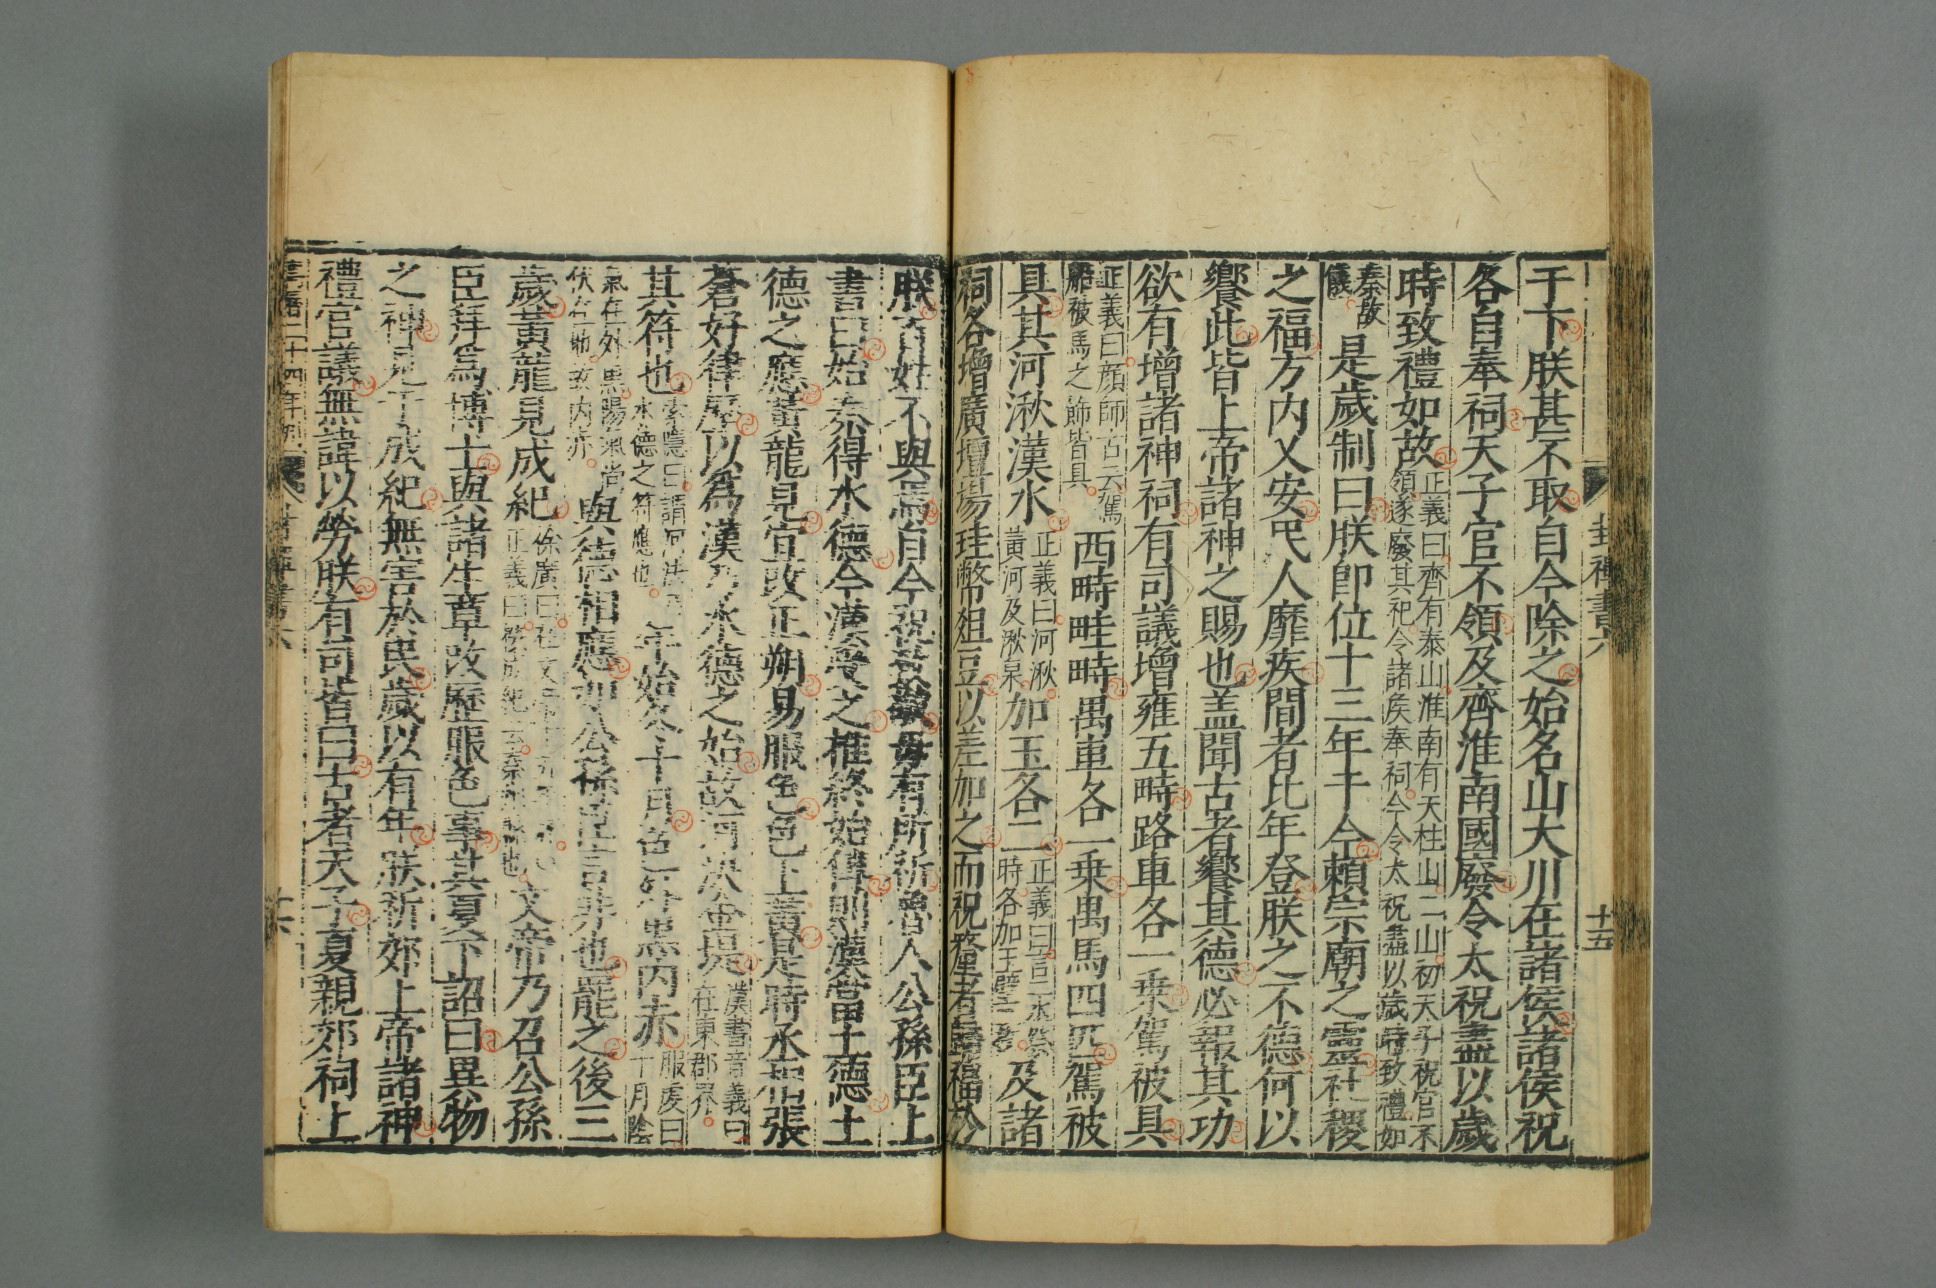 封禪書六 十五
于下朕甚不取自今除之始名山大川在諸侯諸侯祝
各自奉祠天子官不領及齊淮南國廢令太祝盡以歲
時致禮如故正義曰齊有泰山淮南有天柱山二山初天子祝官不領遂廢其祀令諸侯奉祠今令太祝盡以歲時致禮如
秦故儀是歲制曰朕即位十三年于今賴宗廟之靈社稷
之福方內乂安民人靡疾間者比年登朕之不德何以
饗此皆上帝諸神之賜也蓋聞古者饗其德必報其功
欲有增諸神祠有司議增雍五畤路車各一乘駕被具
正義曰顏師古云駕被馬之飾皆具西畤畦畤禺車各一乘禺馬四匹駕被
具其河湫漢水正義曰河湫黃河及湫泉加玉各二正義曰言二水祭時各加玉璧二枚及諸
祠各增廣壇場珪幣俎豆以差加之而祝釐者歸福於
朕百姓不與焉自今祝致敬毋有所祈魯人公孫臣上
書曰始秦得水德今漢受之推終始傳則漢當土德土
德之應黃龍見宜改正朔易服色色上黃是時丞相張
蒼好律歷以為漢乃水德之始故河決金隄漢書音義曰在東郡界
其符也索隱曰謂河決是水德之符應也年始冬十月色外黑內赤服虔曰十月陰
氣在外黑陽氣尚伏在地故內赤與德相應如公孫臣言非也罷之後三
歲黃龍見成紀徐廣曰在文帝十五年春正義曰成紀今秦州縣也文帝乃召公孫
臣拜為博士與諸生草改歷服色事其夏下詔曰異物
之神見于成紀無害於民歲以有年朕祈郊上帝諸神
禮官議無諱以勞朕有司皆曰古者天子夏親郊祀上